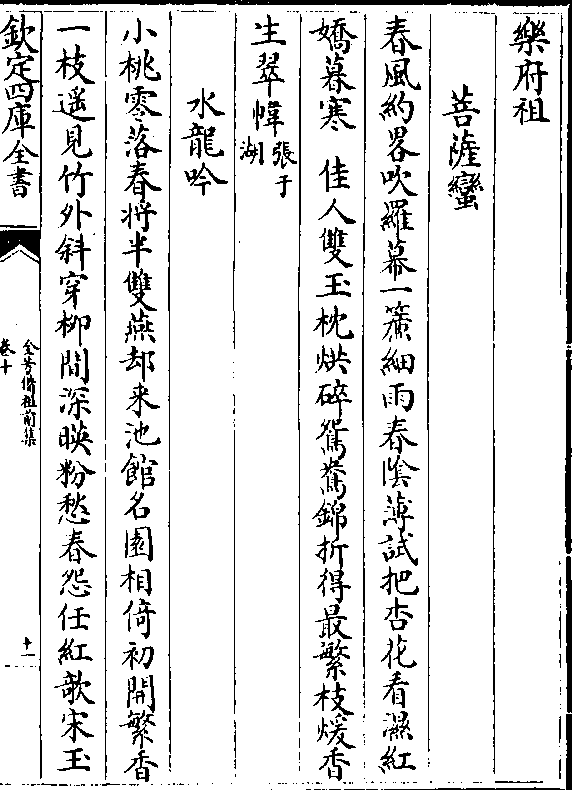 樂府祖
菩薩蠻
春風約畧吹羅幕一簾細雨春陰薄試把杏花看濕紅
嬌暮寒 佳人雙玉枕烘碎鴛鴦錦折得最繁枝煖香
生翠幃張于湖
水龍吟
小桃零落春將半雙燕却来池館名園相倚初開繁香
一枝遥見竹外斜穿柳間深暎粉愁春怨任紅欹宋玉
欽定四庫全書
全芳備祖前集
卷十
十一